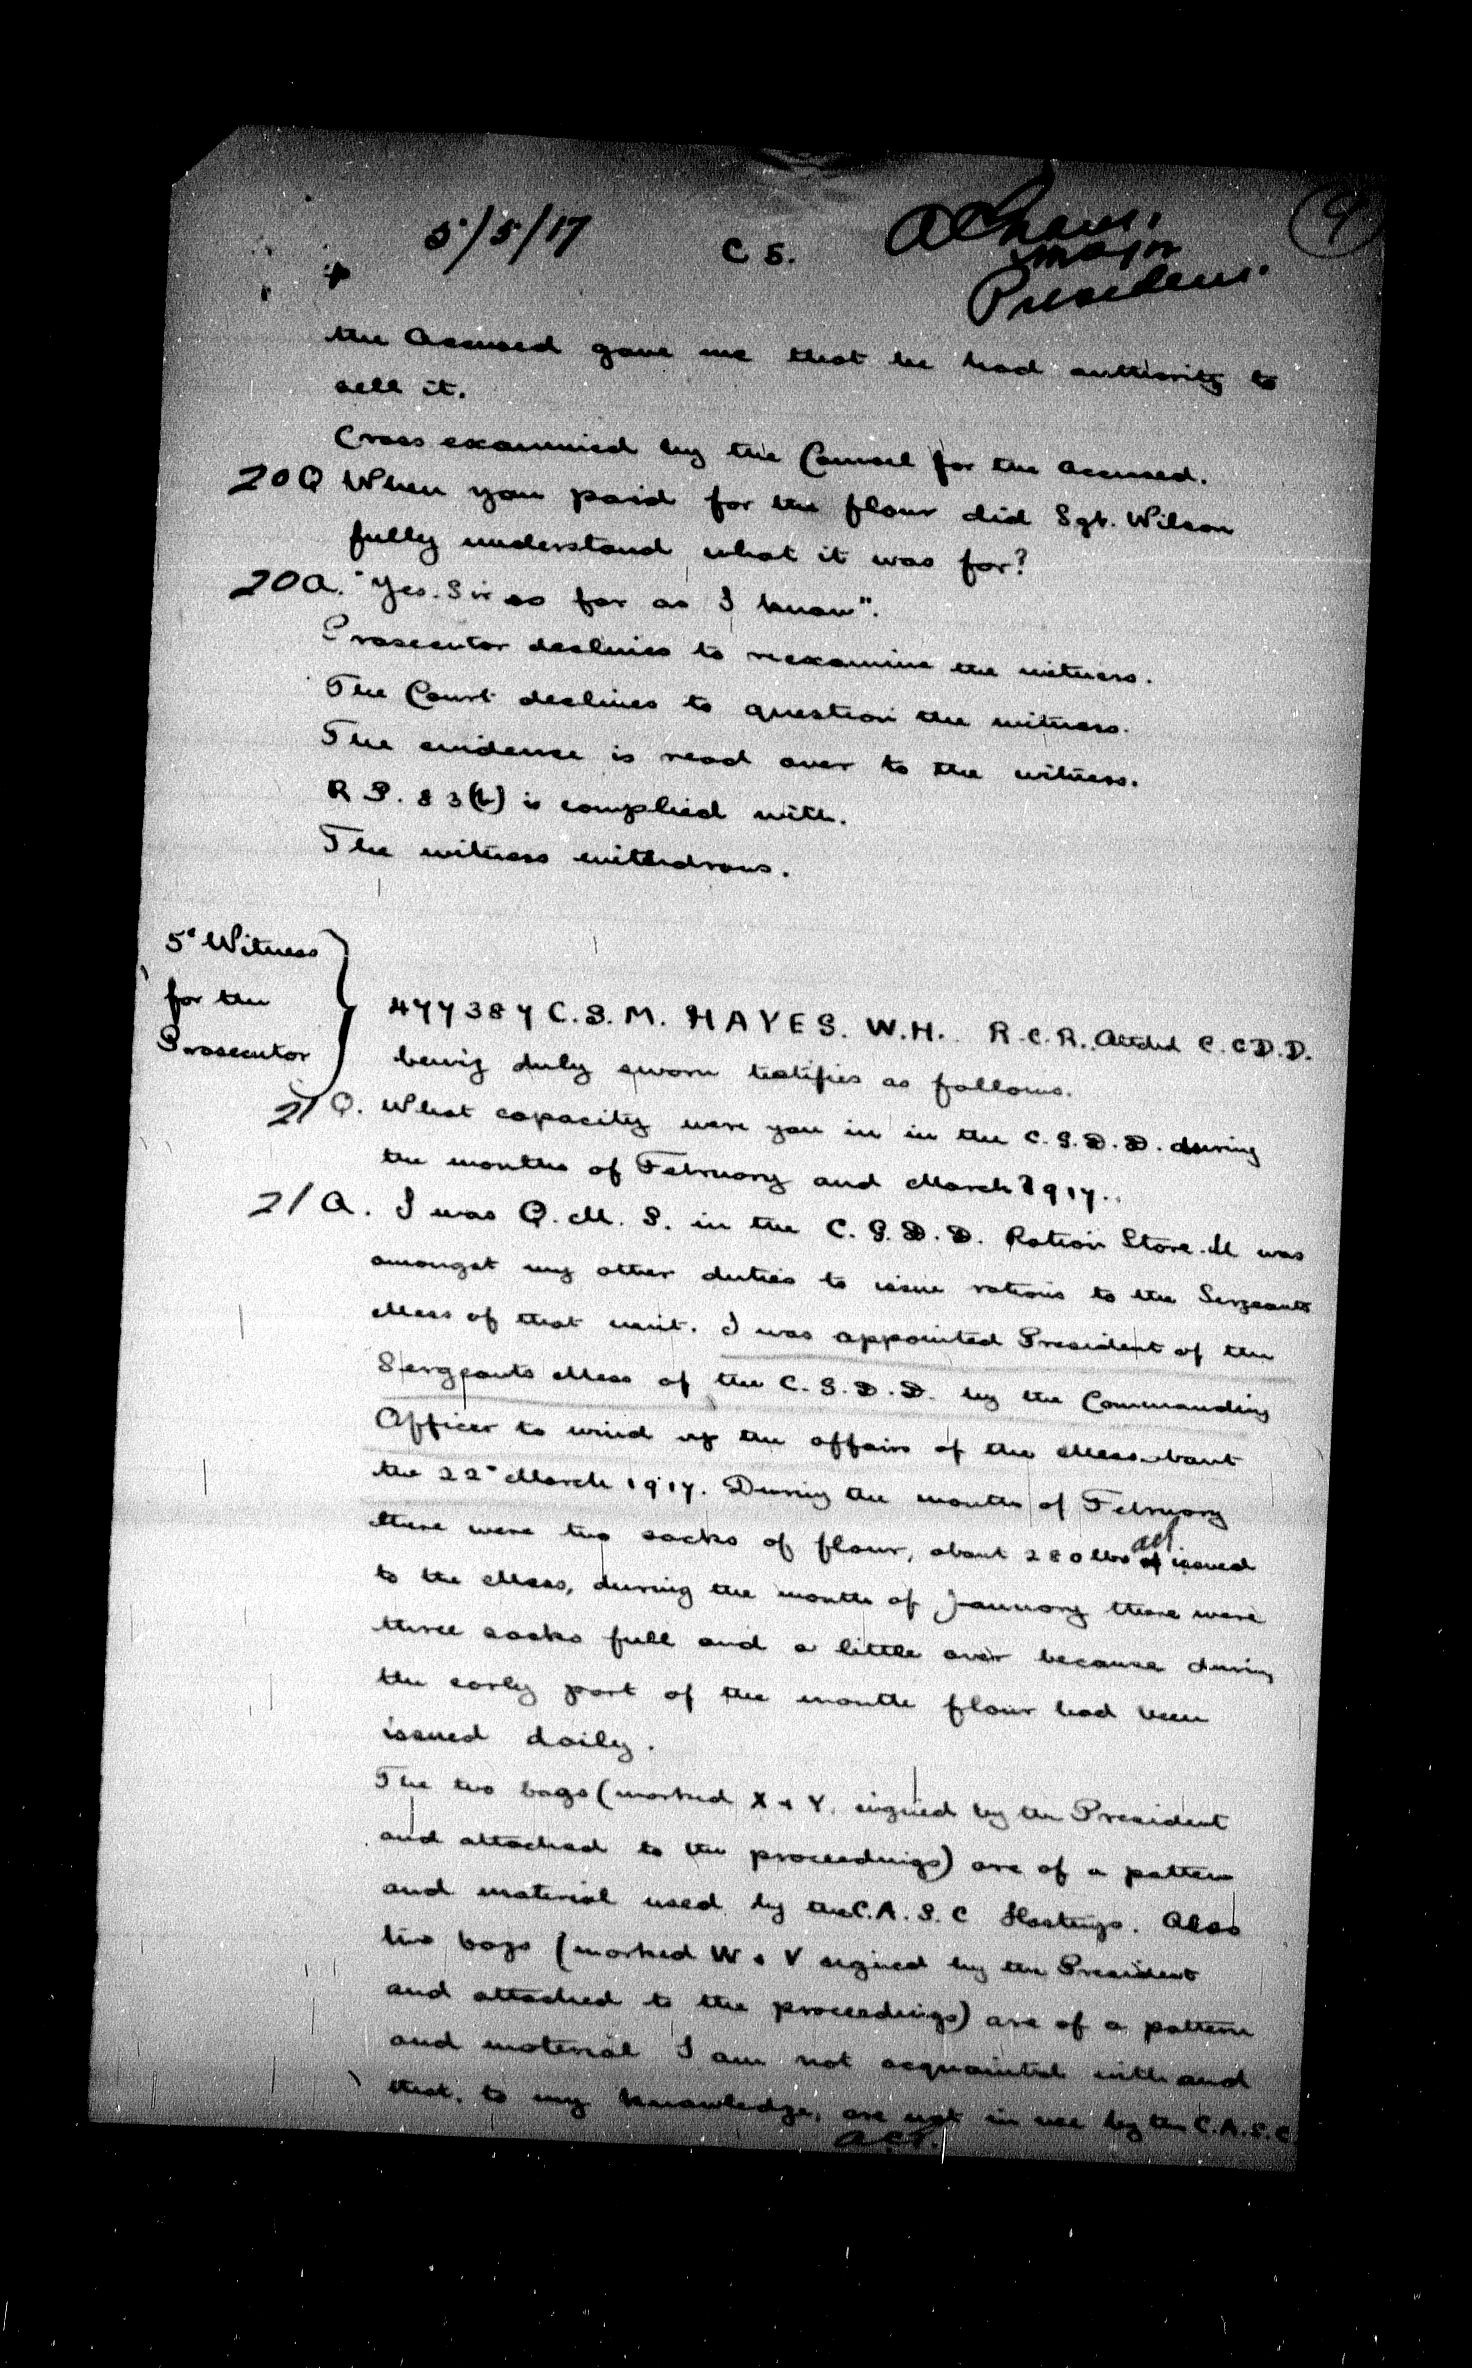 9
5/5/17 C S.
Major
President.
the Accused gave me that he had authority to
sell it.
Cross examined by the Counsel for the Accused.
20Q When you paid for the flour did Sgt. Wilson
fully understand what it was for?
20A. "Yes. Sir as far as I know".
Prosecutor declines to reexamine the witness.
The Court declines to question the witness.
The evidence is read over to the witness.
R P. 83(b) is complied with.
The witness withdraws.
5th Witness
for the
Prosecutor
477387 C.S.M. HAYES. W.H. R.C.R. Attchd C.C.D.D.
being duly sworn testifies as follows.
21 Q. What capacity were you in in the C.S.D.D. during
the months of February and March 1917.
21 A. I was Q.M.S. in the C.S.D.D. Ration Store. It was
amongst my other duties to issue rations to the Sergeants
Mess of that unit. I was appointed President of the
Sergeants Mess of the C.S.D.D. by the Commanding
Officer to wind up the affairs of the Mess about
the 22nd March 1917. During the months of February
there were two sacks of flour, about 280 lbs issued
to the Mess, during the month of January there were
three sacks full and a little over because during
the early part of the month flour had been
issued daily.
The two bags (marked X & Y. signed by the President
and attached to the proceedings) are of a pattern
and material used by the C.A.S.C Hastings. Also
two bags (marked W & V signed by the President
and attached to the proceedings) are of a pattern
and material I am not acquainted with and
that, to my knowledge, are not in use by the C.A.S.C